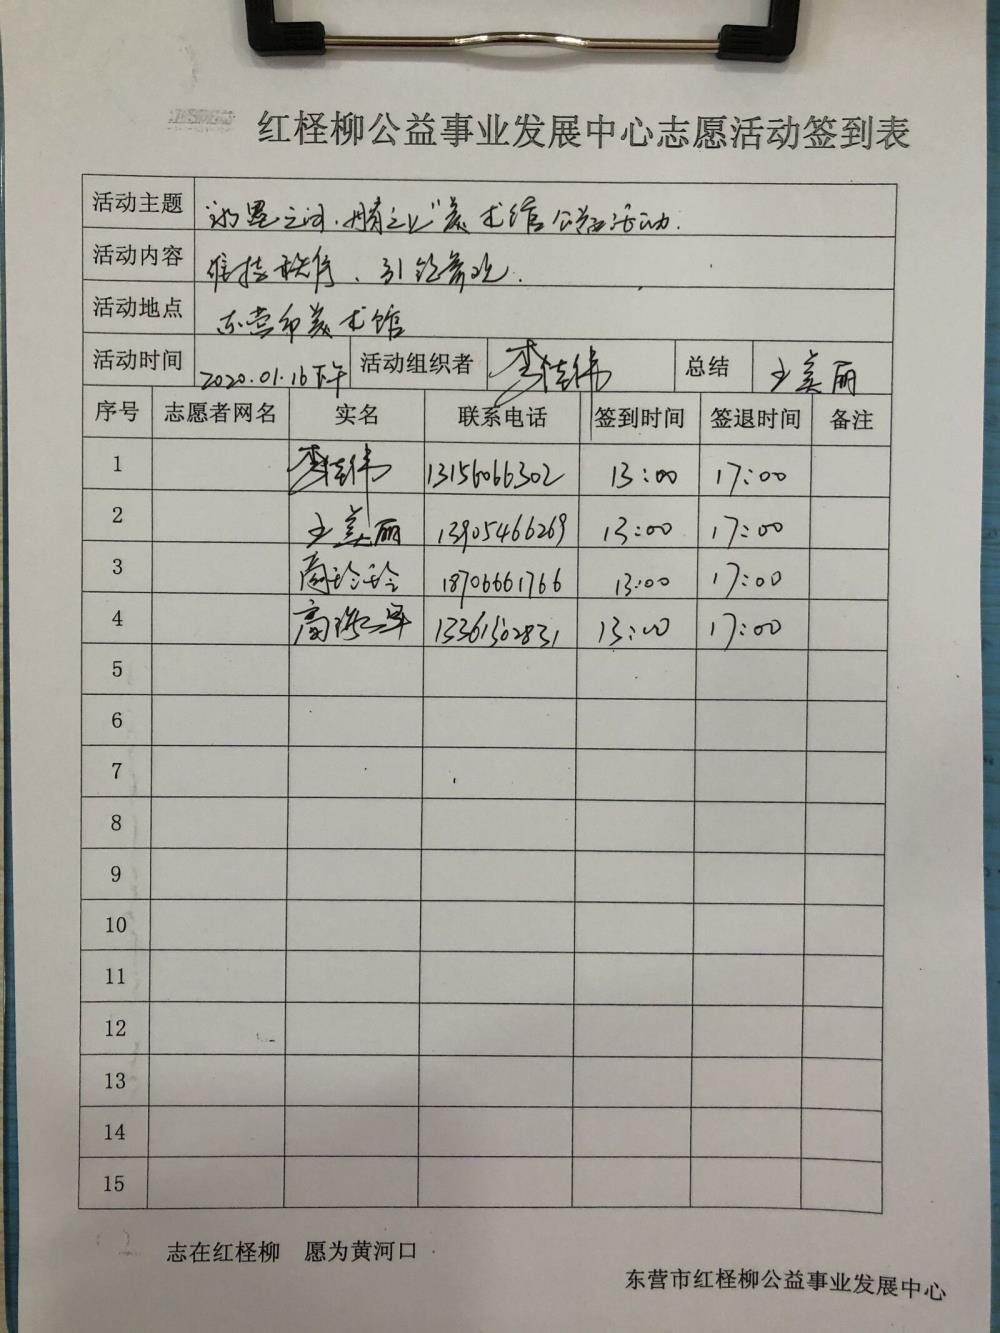 红柽柳公益事业发展中心志愿活动签到表
活动主题 "翰墨之间，丹青之上"美术馆公益活动.
活动内容 维持秩序、引领参观.
活动地点 东营市美术馆
活动时间 2020.01.16下午 活动组织者 李佳伟 总结 王美丽
序号 志愿者网名 实名 联系电话 签到时间 签退时间 备注
1 李佳伟 13156066302 13:00 17:00
2 王美丽 13905466269 13:00 17:00
3 商玲玲 18706661766 13:00 17:00
4 高 13361502831 13:00 17:00
5
6
7
8
9
10
11
12
13
14
15
志在红柽柳 愿为黄河口
东营市红柽柳公益事业发展中心